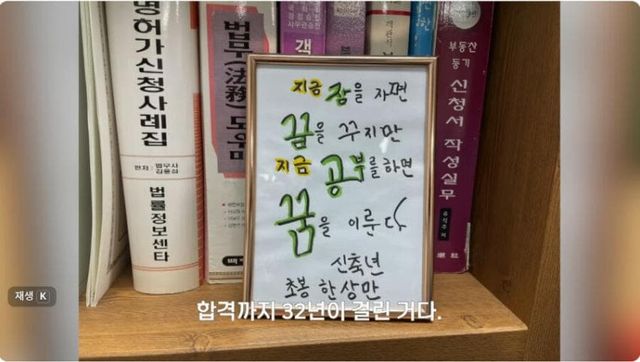 명허가신청사례집
편저 법무사
김용섭
법률정보센타
법무(法務)도우미
객
부동산
등기
신청서 작성실무
지금 잠을 자면
꿈을 꾸지만
지금 공부를 하면
꿈을 이룬다
신축년
초봉 한상만
합격까지 32년이 걸린 거다.
재생 K